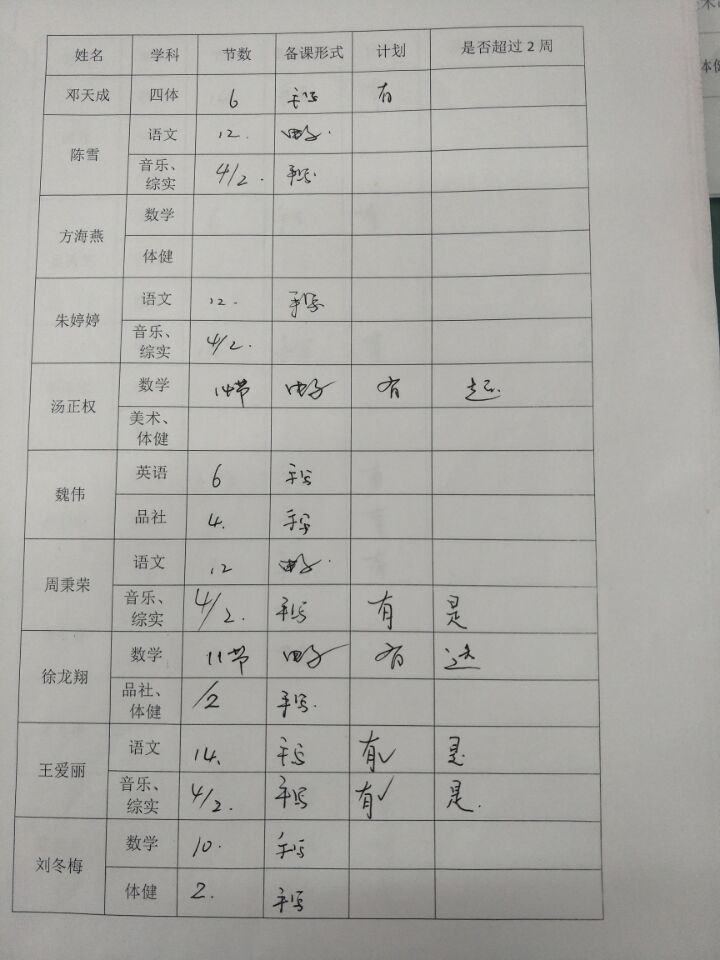 姓名 学科 节数 备课形式 计划 是否超过2周
邓天成 四体 6 手写 有
陈雪 语文 12. 电子.
音乐、综实 4/2. 手写.
方海燕 数学
体健
朱婷婷 语文 12. 手写
音乐、综实 4/2.
汤正权 数学 14节 电子 有
美术、体健
魏伟 英语 6 手写
品社 4. 手写
周秉荣 语文 12 电子.
音乐、综实 4/2. 手写 有 是
徐龙翔 数学 11节 电子 有
品社、体健 /2 手写.
王爱丽 语文 14. 手写 有✓ 是
音乐、综实 4/2. 手写 有✓ 是.
刘冬梅 数学 10. 手写
体健 2. 手写